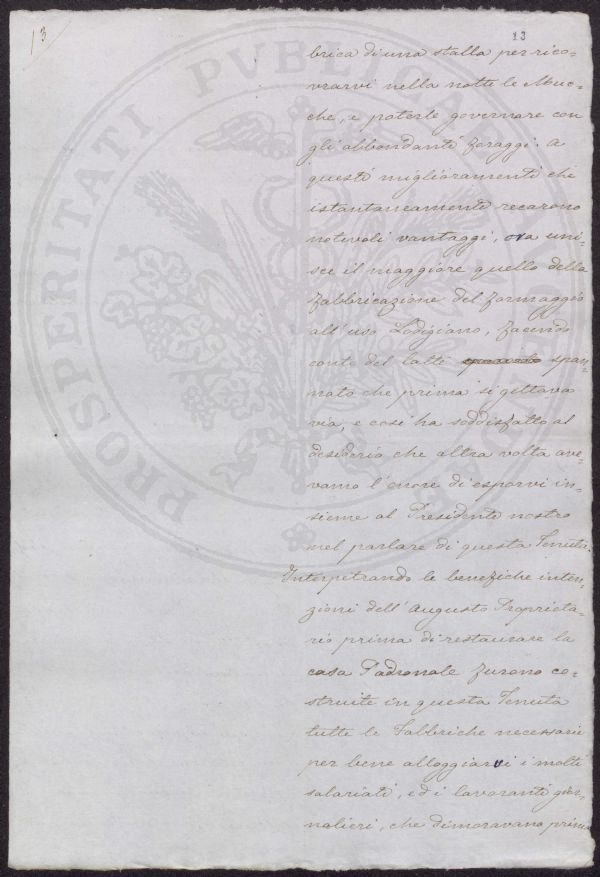 13
13
brica di una stalla per rico-
vrarvi nella notte le Muc-
che, e poterle governare con
gli abbondanti foraggi. A
questi miglioramenti che
istantaneamente recarono
notevoli vantaggi, ora uni-
sce il maggiore quello della
fabbricazione del formaggio
all'uso Lodigiano, facendo
conto del latte span-
nato che prima si gettava
via, e così ha soddisfatto al
desiderio che altra volta ave-
vamo l'onore di esporvi in-
sieme al Presidente nostro
nel parlare di questa Tenuta.
Interpetrando le benefiche inten-
zioni dell'Augusto Proprieta-
rio prima di restaurare la
casa Padronale furono co-
struite in questa Tenuta
tutte le Fabbriche necessarie
per bene alloggiarvi i molti
salariati, ed i lavoranti gior-
nalieri, che dimoravano prima
PROSPERITATI PVBLICAE